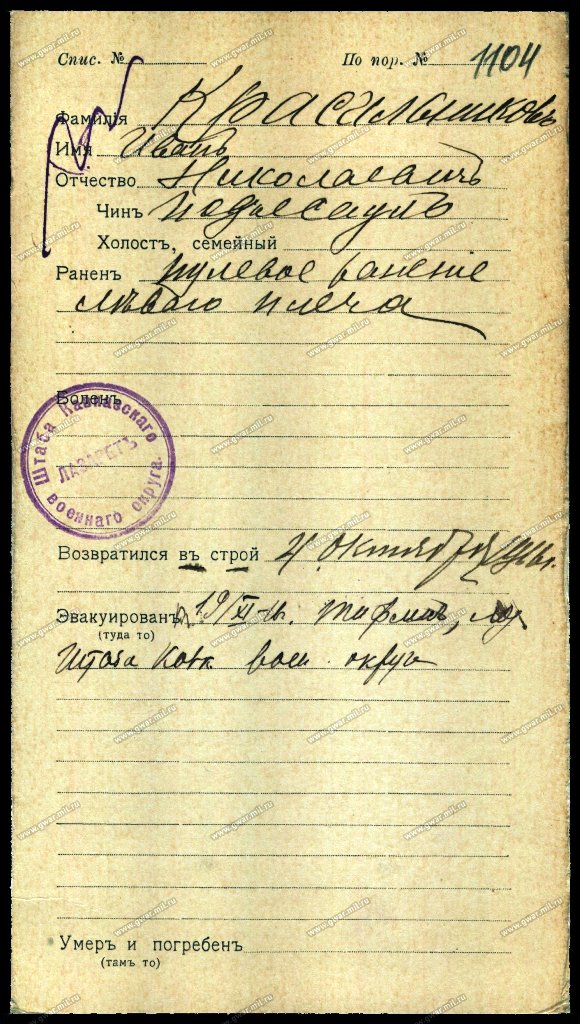 Спис. №
По пор. № 1104
Фамилія Красильниковъ
Имя Иванъ
Отчество Николаевичъ
Чинъ Подъесаулъ
Холостъ, семейный
Раненъ пулевое ранение
лѣваго плеча
Боленъ
Штаба Кавказскаго
ЛАЗАРЕТЪ
военнаго округа.
Возвратился въ строй 4 октября
Эвакуированъ
(туда то)
Штаба Кавк воен. округа
Умеръ и погребенъ
(тамъ то)
www.gwar.mil.ru